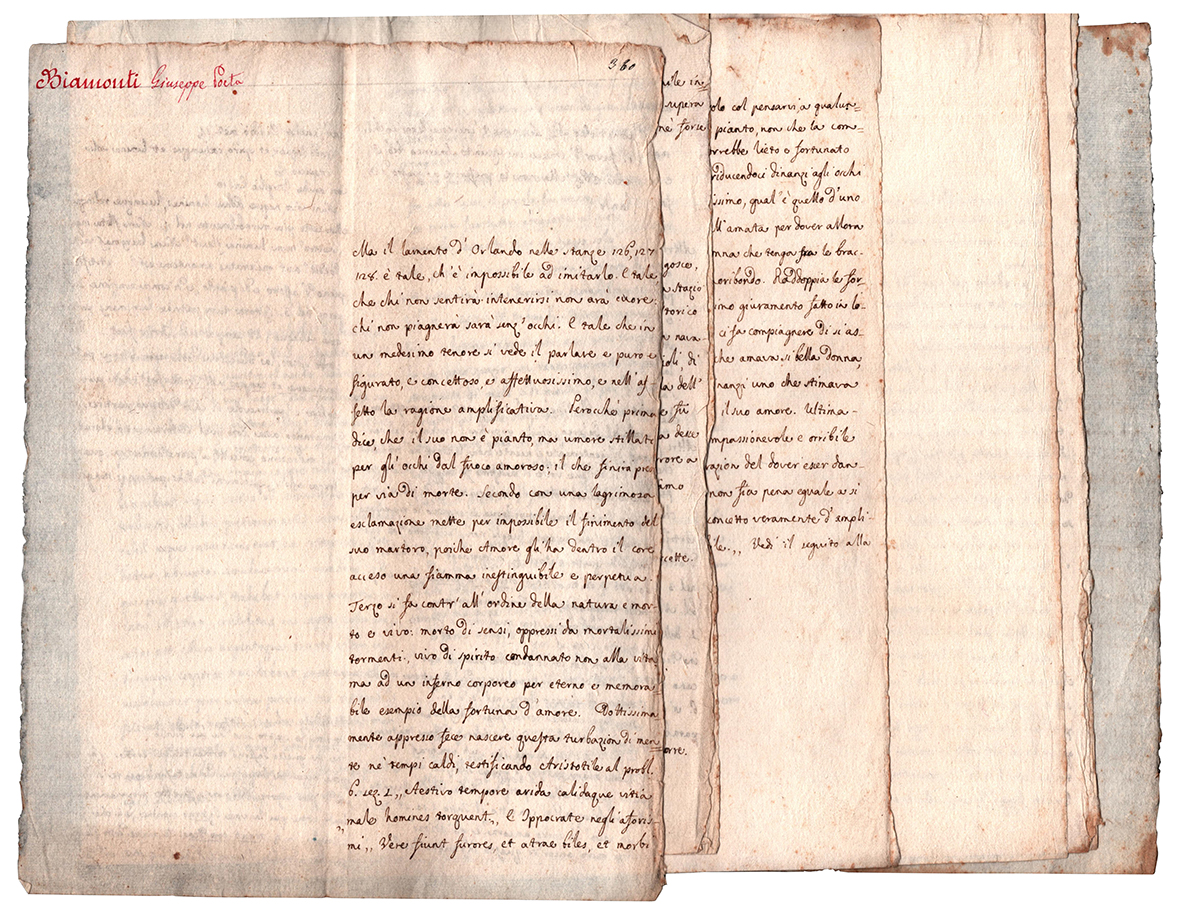 Biamonti Giuseppe Poeta
360
Ma il lamento d' Orlando nelle stanze 126, 127
128. è tale, ch' è impossibile ad imitarlo. E tale
che chi non sentirà intenerirsi non arà cuore:
chi non piagnerà sarà senz' occhi. E tale che in
un medesimo tenore si vede il parlare e puro e
figurato, e concettoso, e affettuosissimo, e nell' af-
fetto la ragione amplificativa. Perocché prima
dice, che il suo non è pianto, ma umore stillato
per gli occhi dal fuoco amoroso; il che finirà
per via di morte. Secondo con una lagrimosa
esclamazione mette per impossibile il finimento del
suo martoro, poiché Amore gli ha dentro il core
acceso una fiamma inestinguibile e perpetua.
Terzo si fa contr' all' ordine della natura e mor-
to e vivo: morto di sensi, oppressi da mortalissimi
tormenti, vivo di spirito condannato non alla vita
ma ad un inferno corporeo per eterno e memora
bile esempio della fortuna d' amore. Dottissima
mente appresso fece nascere questa turbazion di men
te ne' tempi caldi, testificando Aristotile al probl.
6. sez. 1 „ Aestivo tempore arida calidaque vitia
„ male homines torquent „ E Ippocrate negli aforis-
mi „ Vere fiunt furores, et atrae biles, et morbi
ile in
supera
né forse
gosce,
a stazio
torico
n nava-
ioli, di
la dell'
e fu
a dece
rore a
amo
cette.
orte.
olo col pensarvi, a qualun=
pianto, non che la com=
rrebbe lieto o fortunato
riducendoci dinanzi agli occhi
issimo, qual' è quello d' uno
ll' amata per dover allora
nna che tenga fra le brac-
oribondo. Raddoppia le for-
imo giuramento fatto in lo-
ci fa compiagnere di si as-
che amava si bella Donna,
nanzi uno che stimava
il suo amore. Ultima-
mpassionevole e orribile
razion del dover esser dan-
non fia pena eguale a si
concetto veramente d' ampli-
le. „ Vedi il seguito alla